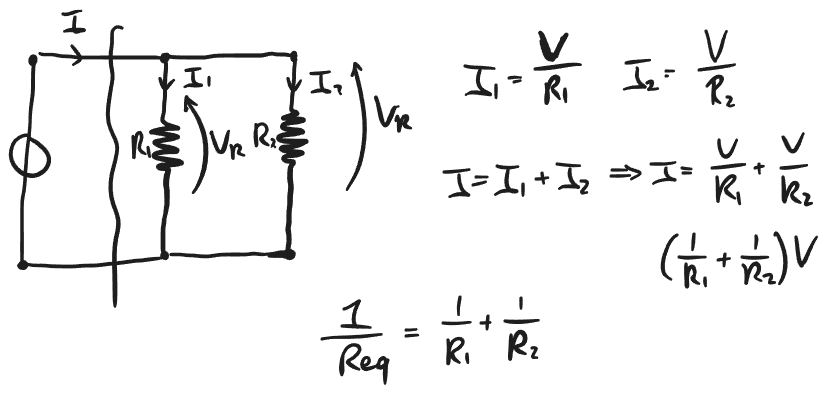 I
I₁
I₂
R₁
V_R
R₂
V_R
I₁ = V/R₁ I₂ = V/R₂
I = I₁ + I₂ ⇒ I = V/R₁ + V/R₂
(1/R₁ + 1/R₂)V
1/Req = 1/R₁ + 1/R₂